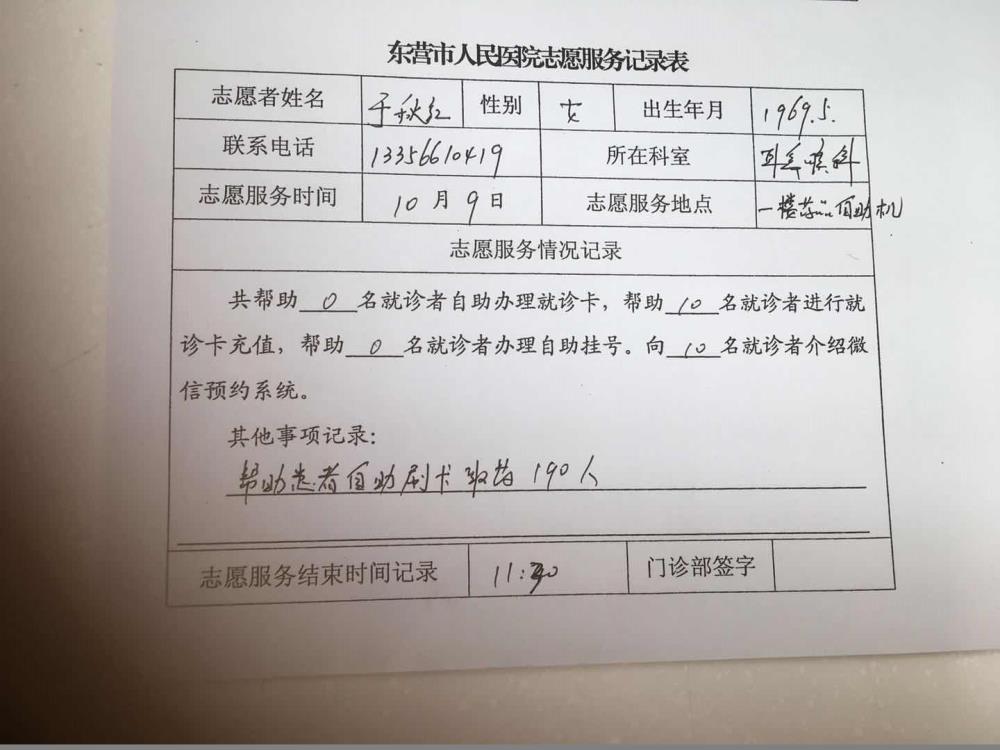 东营市人民医院志愿服务记录表
志愿者姓名 于秋红 性别 女 出生年月 1969.5.
联系电话 13356610419 所在科室 耳鼻喉科
志愿服务时间 10月9日 志愿服务地点 一楼药品自助机
志愿服务情况记录
共帮助 0 名就诊者自助办理就诊卡，帮助 10 名就诊者进行就
诊卡充值，帮助 0 名就诊者办理自助挂号。向 10 名就诊者介绍微
信预约系统。
其他事项记录：
帮助患者自助刷卡取药 190人
志愿服务结束时间记录 11:30 门诊部签字